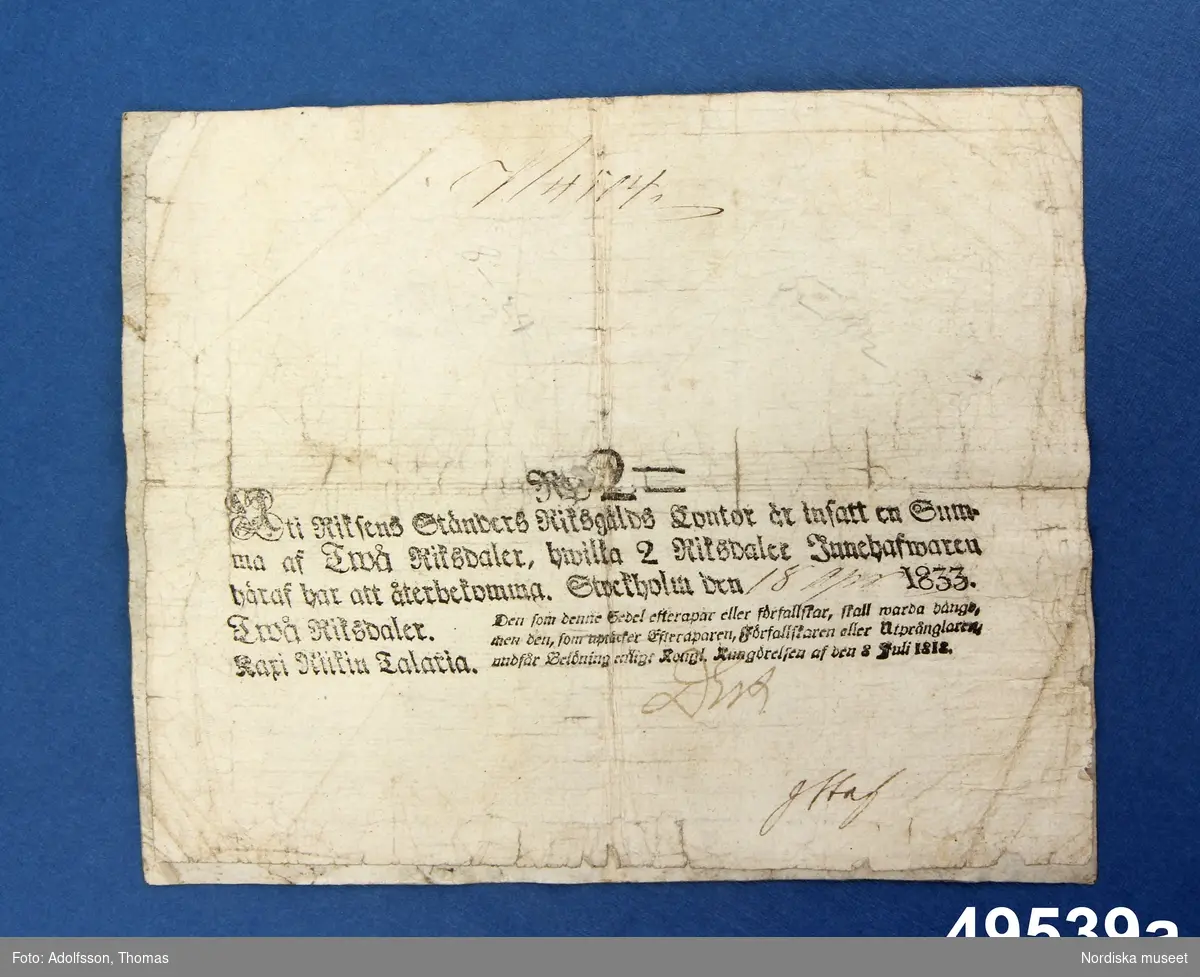 Rd 2 =
Uti Riksens Ständers Riksgälds Contor är insatt en Sum-
ma af Twå Riksdaler, hwilka 2 Riksdaler Innehafwaren
häraf har att återbekomma. Stockholm den 18 Apr 1833.
Twå Riksdaler.
Kaxi Riikin Talaria.
Den som denne Sedel efterapar eller förfallskar, skall warda hängd,
men den, som uptäcker Efteraparen, Förfallskaren eller Utprånglaren,
undfår Belöning enligt Kongl. Kungörelsen af den 8 Juli 1818.
49539a
Foto: Adolfsson, Thomas
Nordiska museet